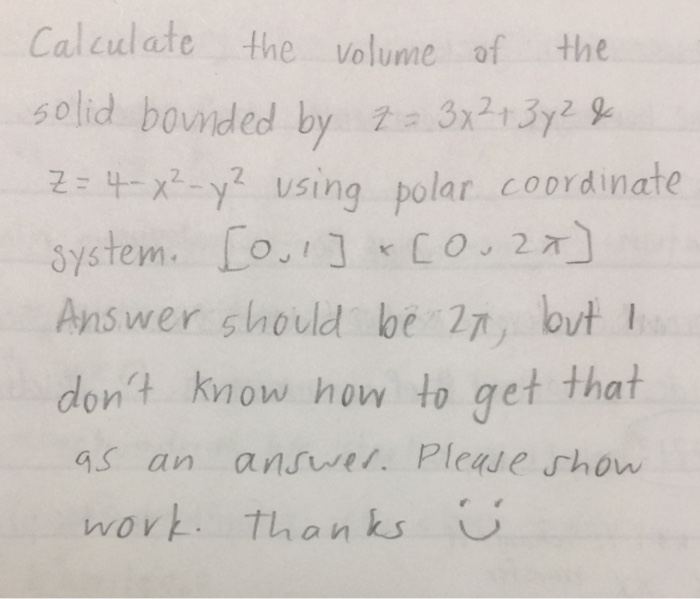 Calculate the volume of the
solid bounded by z = 3x²+3y² &
z = 4-x²-y² using polar coordinate
system. [0,1] × [0, 2π]
Answer should be 2π, but I
don't know how to get that
as an answer. Please show
work. Thanks Ü